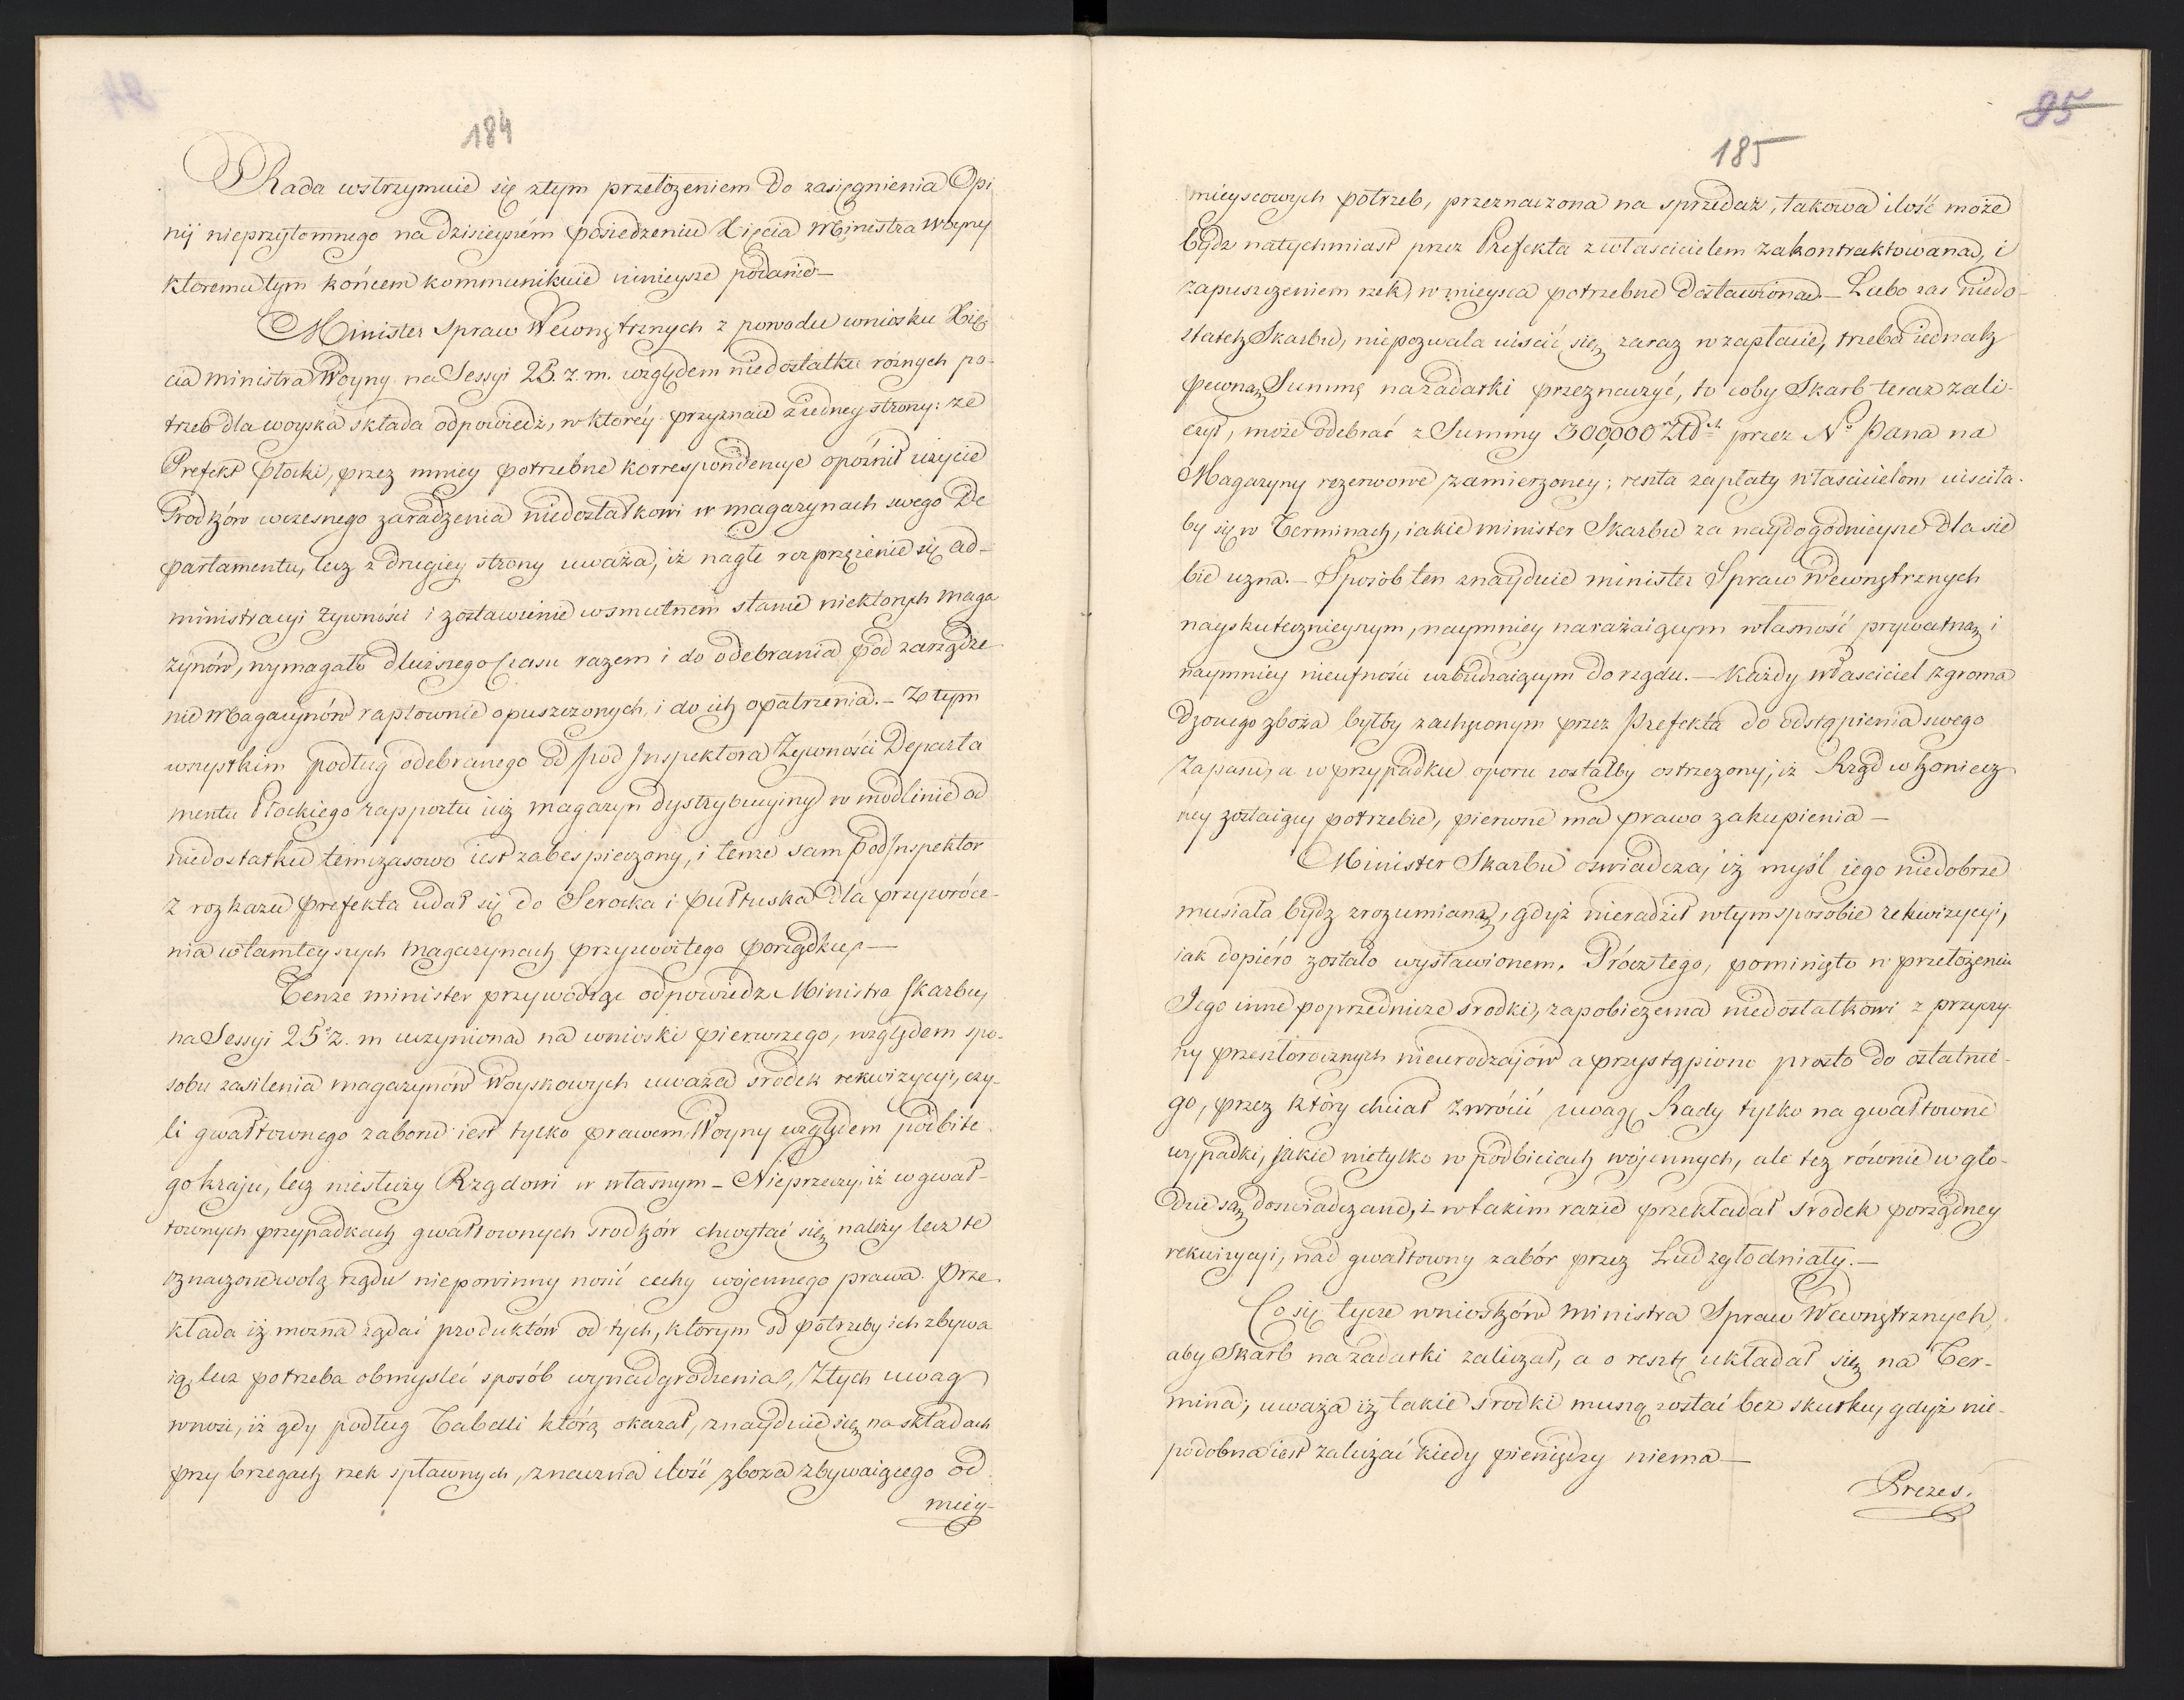 184
Rada wstrzymuie się z tym przełożeniem do zasięgnienia Opi
nij nieprzytomnego na dzisieyszém posiedzeniu Xięcia Ministra Woyny
ktoremu tym końcem kommunikuie ninieysze podanie—
Minister Spraw Wewnętrznych z powodu wniosku Xię
cia Ministra Woyny na Sessyi 25. z. m. względem niedostatku rożnych po-
trzeb dla woyska składa odpowiedź, w którey przyznaie z iedney strony: że
Prefekt Płocki, przez mniey potrzebne korrespondencye opoźnił użycie
Srodków wczesnego zaradzenia niedostatkowi w magazynach swego De
partamentu, lecz z drugiey strony uważa, iż nagłe rozprzężenie się ad-
ministracyi żywności i zostawienie w smutnem stanie niektorych maga
zynów, wymagało dłuższego Czasu razem i do odebrania pod zarządze
nie Magazynów raptownie opuszczonych, i do ich opatrzenia.— Z tym
wszystkim podług odebranego od Pod Inspektora Żywności Departa
mentu Płockiego rapportu iuż magazyn dystrybucyiny w Modlinie od
niedostatku temczasowo iest zabespieczony, i tenże sam Pod Inspektor
z rozkazu Prefekta udał się do Serocka i Pułtuska dla przywróce-
nia w tamteyszych Magazynach przyzwoitego porządku.—
Tenże minister przywodząc odpowiedz Ministra Skarbu,
na Sessyi 25 z. m uczyniona na wnioski pierwszego, względem spo-
sobu zasilenia magazynów Woyskowych uważa srodek rekwizycyi, czy-
li gwałtownego zaboru iest tylko prawem Woyny względem podbite
go kraju, lecz niesłuży Rządowi w własnym – Nieprzeczy, iż w gwał-
townych przypadkach gwałtownych srodków chwytać się należy lecz te
oznaczone wolą rządu niepowinny nosić cechy wojennego prawa. Prze-
kłada iż można żądać produktów od tych, ktorym od potrzeby ich zbywa
ią, lecz potrzeba obmysleć sposób wynadgrodzenia, Z tych uwag
wnosi, iż gdy podług Tabelli którą okazał, znayduie się na składach
przy brzegach rzek spławnych, znaczna ilość zboża zbywaiącego od
miey-
95
185
mieyscowych potrzeb, przeznaczona na sprzedaż, takowa ilość może
bydz natychmiast przez Prefekta z włascicielem zakontraktowana, i
zapuszczeniem rzek, w mieysca potrzebne dostawiona.— Lubo zas niedo-
statek Skarbu, niepozwala uiscić się zaraz w zapłacie, trzeba iednak
pewną Summę na zadatki przeznaczyć, to coby Skarb teraz zali-
czył, może odebrać z Summy 300,000 Złd przez N° Pana na
Magazyny rezerwowe zamierzoney; reszta zapłaty własicielom uisciła-
by się w Terminach, iakie minister Skarbu za naydogodnieysze dla sie
bie uzna.— Sposób ten znayduie minister Spraw Wewnętrznych
nayskutecznieyszym, naymniey narażaiącym własność prywatną i
naymniey nieufności wzbudzaiącym do rządu.— Każdy własciciel zgroma
dzonego zboża byłby zachęconym przez Prefekta do odstąpienia swego
Zapasu, a w przypadku oporu zostałby ostrzezony, iż Rząd w koniecz
ney zostaiący potrzebie, pierwsze ma prawo zakupienia —
Minister Skarbu oswiadcza, iż myśl iego niedobrze
musiała bydz zrozumianą, gdyż nieradził w tym sposobie rekwizycyi,
iak dopiéro zostało wystawionem. Prócz tego, pominięto w przełożeniu
Jego inne poprzednicze srodki, zapobieżenia niedostatkowi z przyczy-
ny przeszłorocznych nieurodzajów a przystąpiono prosto do ostatnie-
go, przez który chciał zwrócić uwagę Rady tylko na gwałtowne
wypadki, jakie nietylko w podbiciach wojennych, ale też równie w gło-
dzie są doswiadczane, i w takim razie przekładał srodek porządney
rekwizycyi, nad gwałtowny zabór przez Lud zgłodniały.—
Co się tycze wniosków Ministra Spraw Wewnętrznych,
aby Skarb na zadatki zaliczał, a o resztę układał się na Ter-
mina, uważa iż takie srodki muszą zostać bez skutku, gdyż nie-
podobna iest zaliczać kiedy pieniędzy niema —
Prezes.